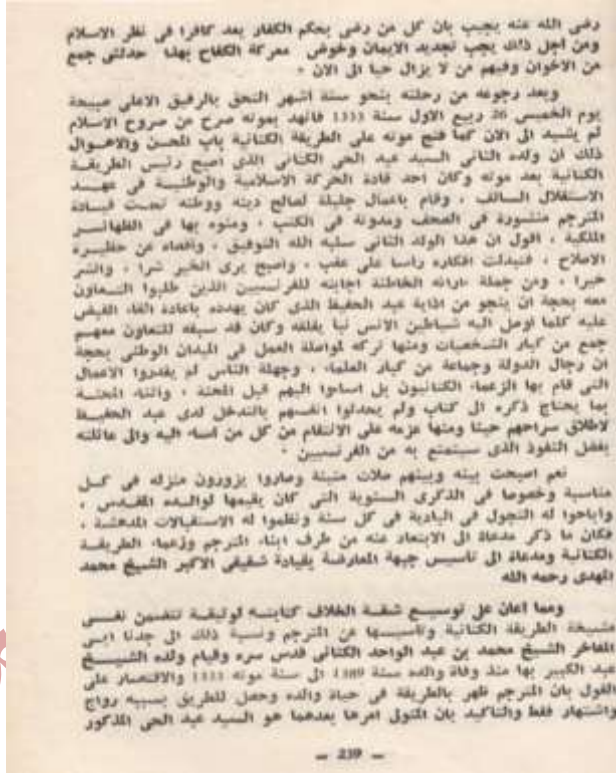 رضى الله عنه يجيب بان كل من رضى بحكم الكفار يعد كافرا فى نظر الاسلام
ومن اجل ذلك يجب تجديد الايمان وخوض معركة الكفاح بهذا حدثنى جمع
من الاخوان وفيهم من لا يزال حيا الى الان ٠
وبعد رجوعه من رحلته بنحو ستة اشهر التحق بالرفيق الاعلى صبيحة
يوم الخميس 26 ربيع الاول سنة 1333 فانهد بموته صرح من صروح الاسلام
لم يشيد الى الان كما فتح موته على الطريقة الكتانية باب المحن والاهوال
ذلك ان ولده الثانى السيد عبد الحى الكتانى الذى اصبح رئيس الطريقة
الكتانية بعد موته وكان احد قادة الحركة الاسلامية والوطنية فى عهد
الاستقلال السالف ، وقام باعمال جليلة لصالح دينه ووطنه تحت قيادة
المترجم منشورة فى الصحف ومدونة فى الكتب ، ومنوه بها فى الظهائر
الملكية ، اقول ان هذا الولد الثانى سلبه الله التوفيق ، واقصاه عن حظيرة
الاصلاح ، فتبدلت افكاره راسا على عقب ، واصبح يرى الخير شرا ، والشر
خيرا ، ومن جملة ارائه الخاطئة اجابته للفرنسيين الذين طلبوا التعاون
معه بحجة ان ينجو من اذاية عبد الحفيظ الذى كان يهدده باعادة القاء القبض
عليه كلما اوصل اليه شياطين الانس نبا يقلقه وكان قد سبقه للتعاون معهم
جمع من كبار الشخصيات ومنها تركه لمواصلة العمل فى الميدان الوطنى بحجة
ان رجال الدولة وجماعة من كبار العلماء ، وجهلة الناس لم يقدروا الاعمال
التى قام بها الزعماء الكتانيون بل اساءوا اليهم قبل المحنة ، واثناء المحنة
بما يحتاج ذكره الى كتاب ولم يجدلوا انفسهم بالتدخل لدى عبد الحفيظ
لاطلاق سراحهم حينا ومنها عزمه على الانتقام من كل من اساء اليه والى عائلته
بفضل النفوذ الذى سيتمتع به من الفرنسيين ٠
نعم اصبحت بينه وبينهم صلات متينة وصاروا يزورون منزله فى كل
مناسبة وخصوصا فى الذكرى السنوية التى كان يقيمها لوالده المقدس ،
واباحوا له التجول فى البادية فى كل سنة ونظموا له الاستقبالات المدهشة ،
فكان ما ذكر مدعاة الى الابتعاد عنه من طرف ابناء المترجم وزعماء الطريقة
الكتانية ومدعاة الى تاسيس جبهة المعارضة بقيادة شقيقى الاكبر الشيخ محمد
المهدى رحمه الله
ومما اعان على توسيع شقة الخلاف كتابته لوثيقة تتضمن نفسى
مشيخة الطريقة الكتانية وتاسيسها عن المترجم ونسبة ذلك الى جدنا ابى
المفاخر الشيخ محمد بن عبد الواحد الكتانى قدس سره وقيام ولده الشيخ
عبد الكبير بها منذ وفاة والده سنة 1389 الى سنة موته 1333 والاقتصار على
القول بان المترجم ظهر بالطريقة فى حياة والده وحصل للطريق بسببه رواج
واشتهار فقط والتاكيد بان المتولى امرها بعدهما هو السيد عبد الحى المذكور
— 239 —